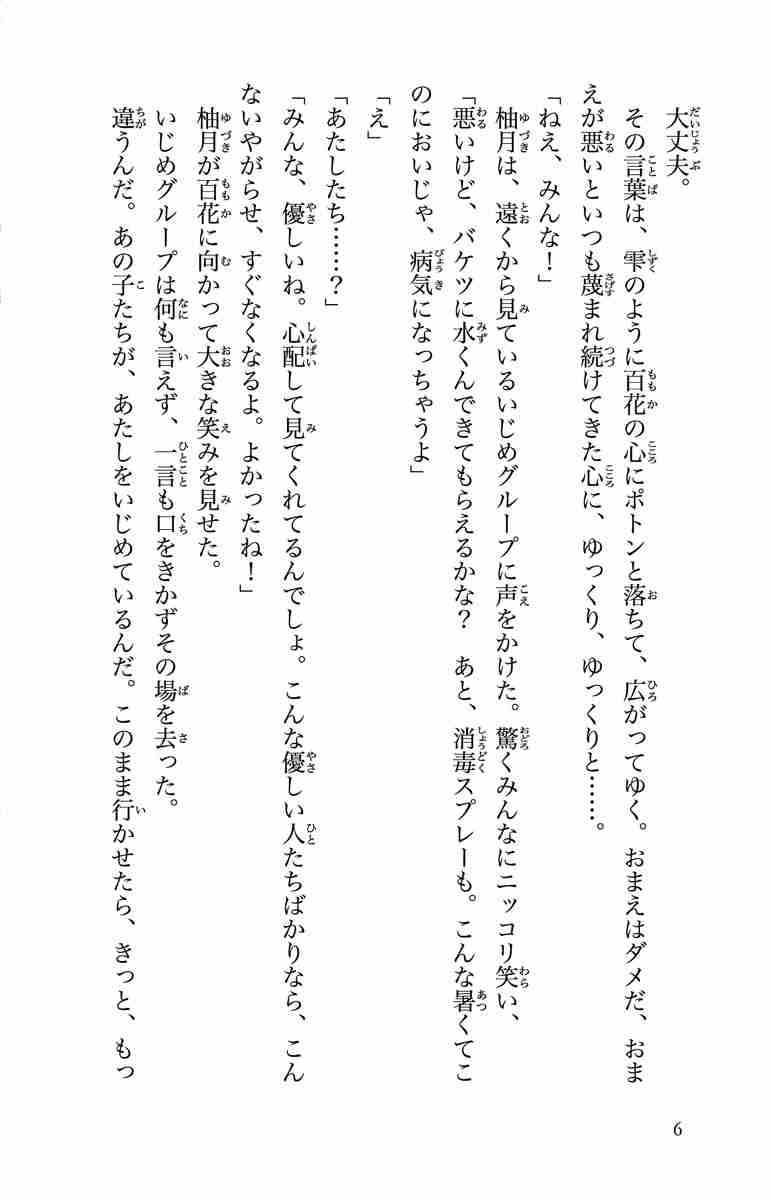 大丈夫。
その言葉は、雫のように百花の心にポトンと落ちて、広がってゆく。おまえはダメだ、おま
えが悪いといつも蔑まれ続けてきた心に、ゆっくり、ゆっくりと……。
「ねえ、みんな！」
柚月は、遠くから見ているいじめグループに声をかけた。驚くみんなにニッコリ笑い、
「悪いけど、バケツに水くんできてもらえるかな？　あと、消毒スプレーも。こんな暑くてこ
のにおいじゃ、病気になっちゃうよ」
「え」
「あたしたち……？」
「みんな、優しいね。心配して見てくれてるんでしょ。こんな優しい人たちばかりなら、こん
ないやがらせ、すぐなくなるよ。よかったね！」
柚月が百花に向かって大きな笑みを見せた。
いじめグループは何も言えず、一言も口をきかずその場を去った。
違うんだ。あの子たちが、あたしをいじめているんだ。このまま行かせたら、きっと、もっ
6